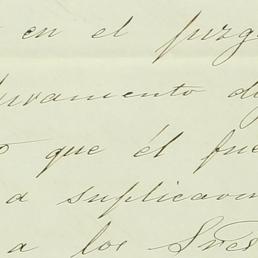 en el juzg
juramento di
que él fue
a suplicar
a los Sres